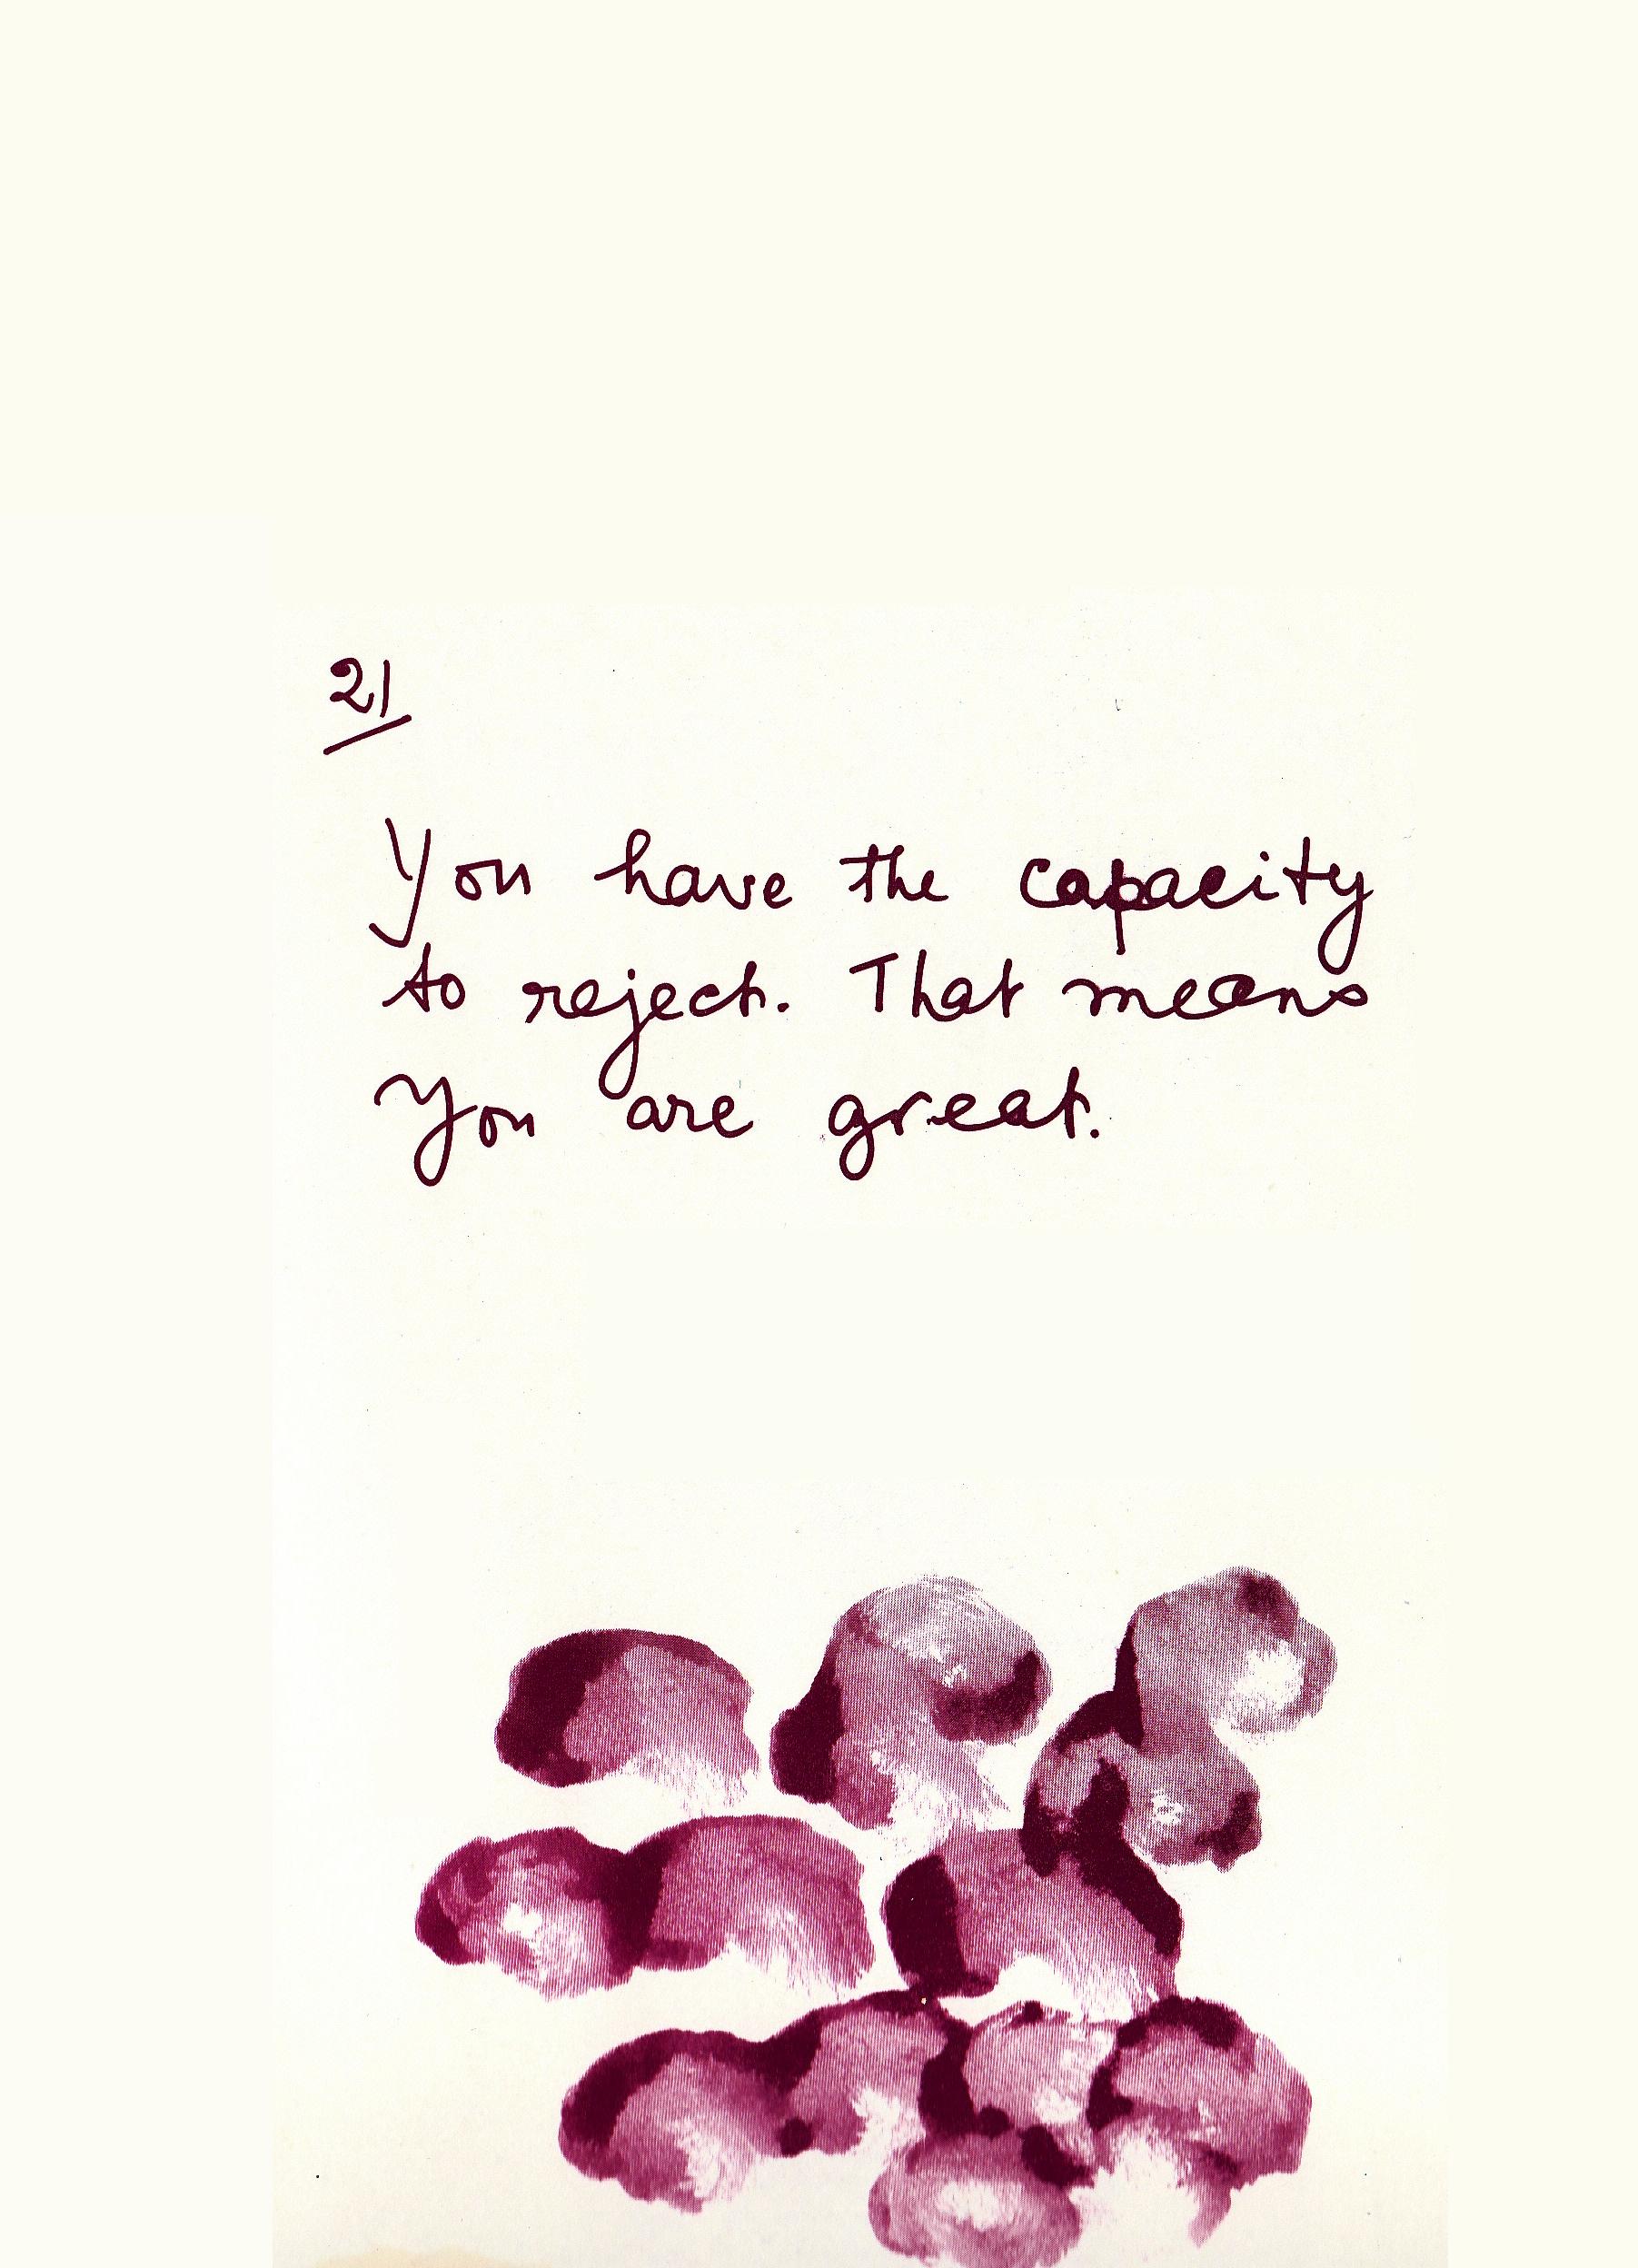 21
You have the capacity
to reject. That means
You are great.